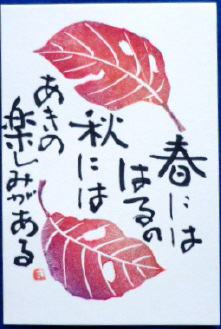 春には
はるの
秋には
あきの
楽しみがある